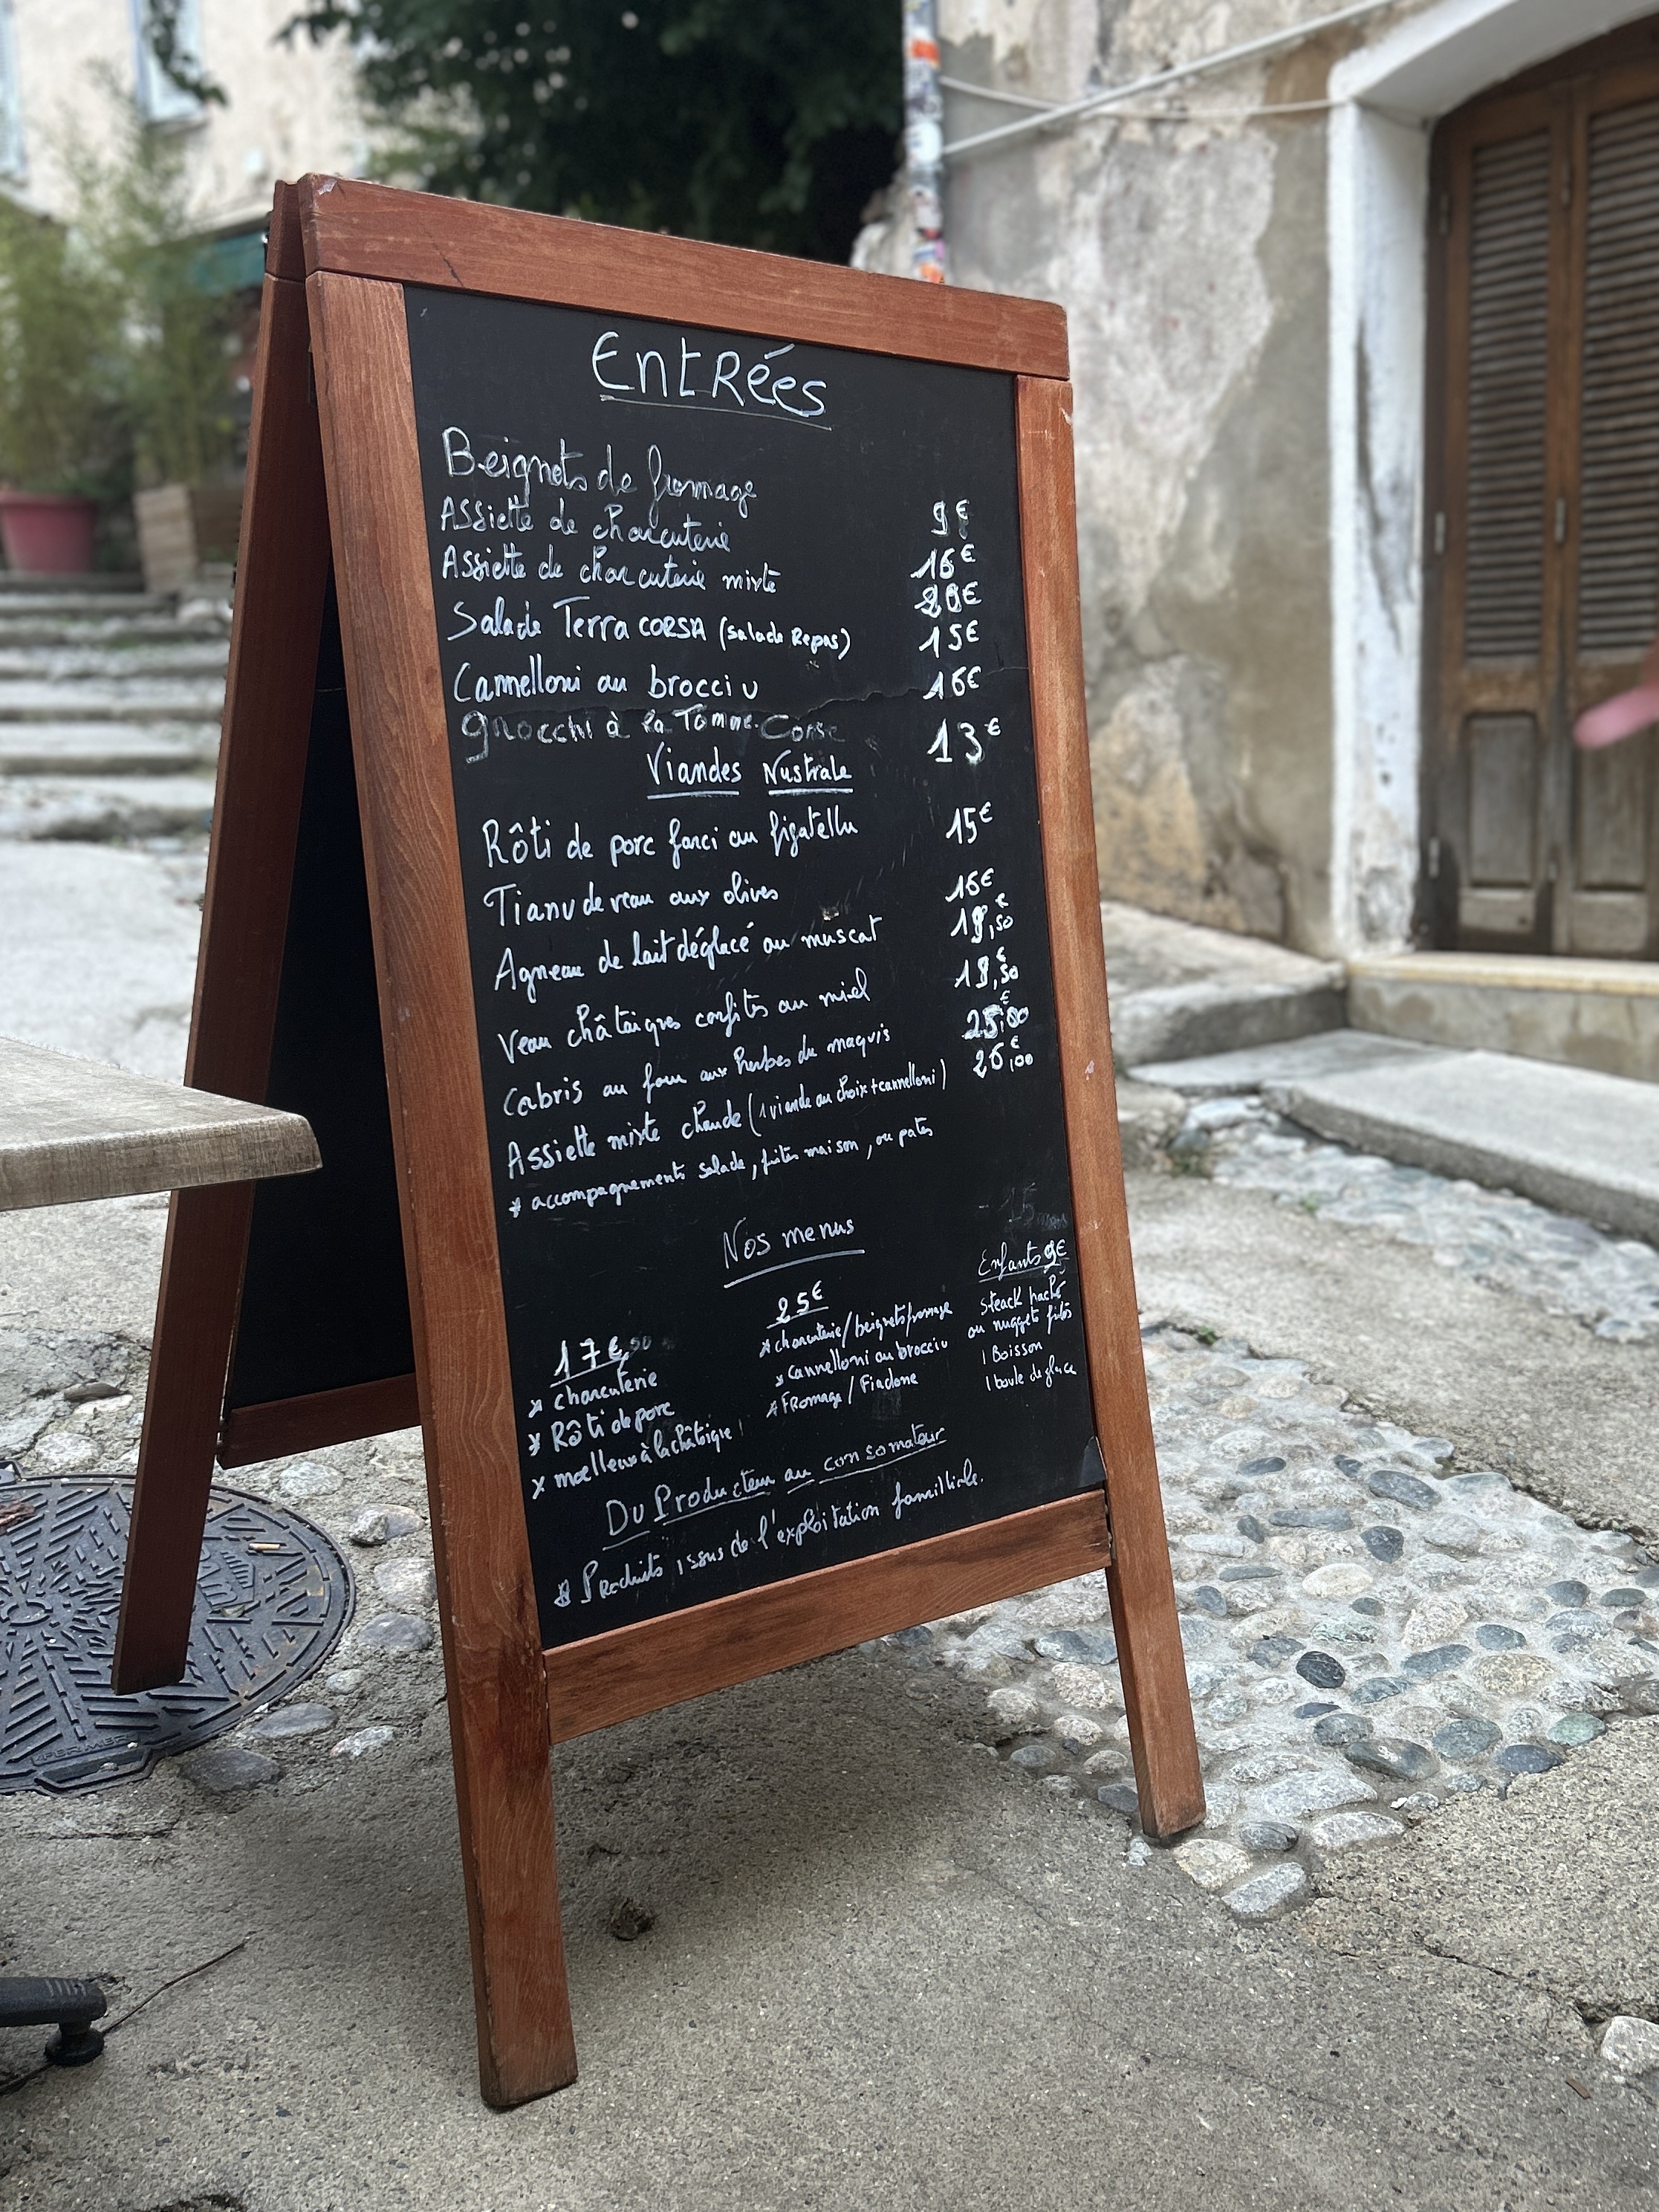 EntRées
Beignets de fromage 9€
Assiette de charcuterie 16€
Assiette de charcuterie mixte 20€
Salade Terra CORSA (salade Repas) 15€
Cannelloni au brocciu 16€
gnocchi à la Tomme Corse 13€
Viandes Nustrale
Rôti de porc farci au figatellu 15€
Tianu de veau aux olives 16€
Agneau de lait déglacé au muscat 19,50€
Veau châtaignes confites au miel 18,50€
Cabris au four aux herbes du maquis 25,00€
Assiette mixte chaude (1 viande au choix + cannelloni) 26,00€
* accompagnements salade, frites maison, ou pates
Nos menus
17€
* charcuterie
* Rôti de porc
* moelleux à la châtaigne
25€
* charcuterie/beignets fromage
* cannelloni au brocciu
* FRomage / Fiadone
Enfants 9€
steack haché
ou nuggets frites
1 Boisson
1 boule de glace
Du Producteur au consomateur
* Produits issus de l'exploitation familliale.